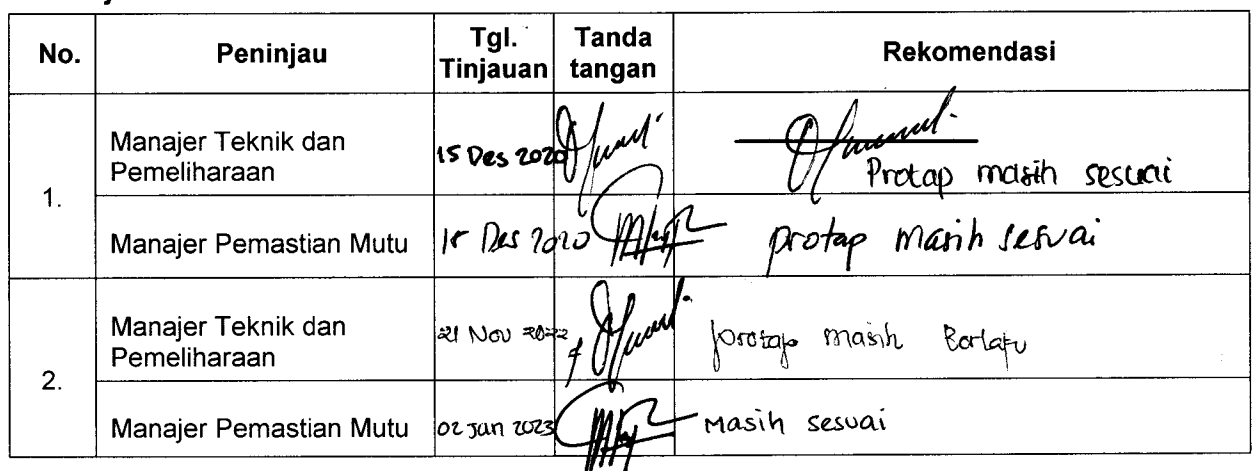 No. Peninjau Tgl. Tinjauan Tanda tangan Rekomendasi
1.
Manajer Teknik dan Pemeliharaan 15 Des 2020 Protap masih sesuai
Manajer Pemastian Mutu 18 Des 2020 protap masih sesuai
2.
Manajer Teknik dan Pemeliharaan 21 Nov 2022 protap masih Berlaku
Manajer Pemastian Mutu 02 Jan 2023 Masih sesuai